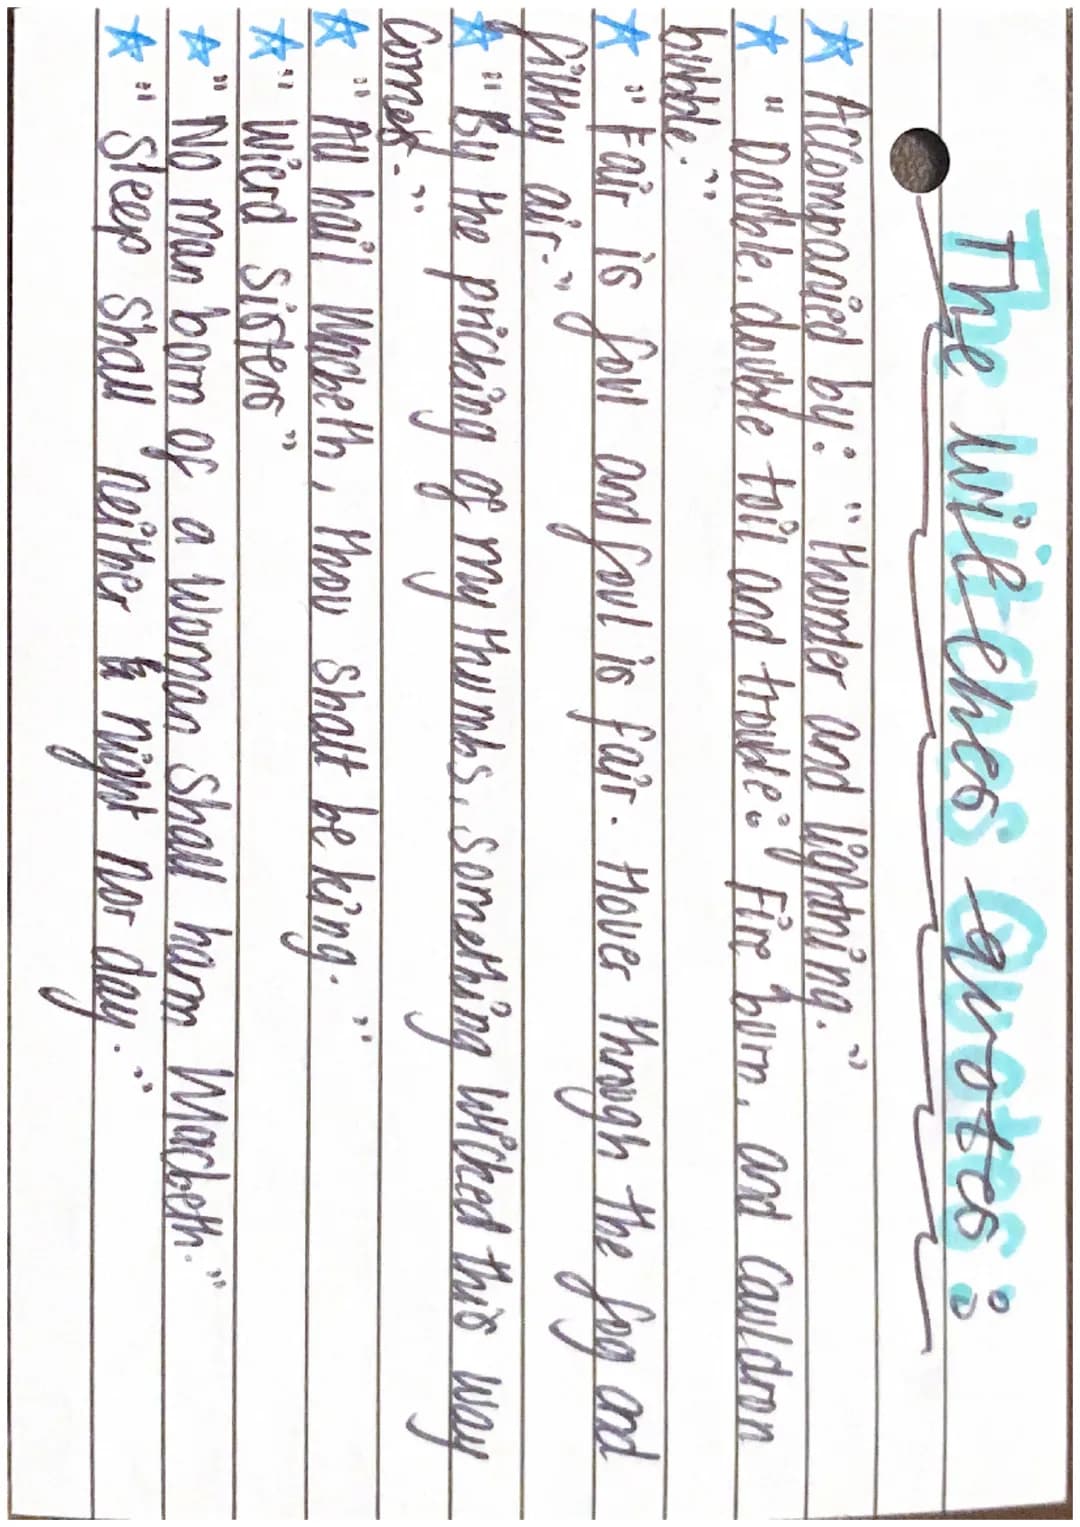 The witches quotes:
☆ Accompanied by: "thunder and lightning."
☆ "Double, double toil and trouble: Fire burn, and Cauldron
bubble."
☆ "Fair is foul and foul is fair. Hover through the fog and
filthy air."
☆ "By the pricking of my thumbs, something wicked this way
comes."
☆ "All hail Macbeth, thou shalt be king."
☆ "Wierd sisters"
☆ "No man born of a woman shall harm Macbeth."
☆ "Sleep shall neither night nor day."